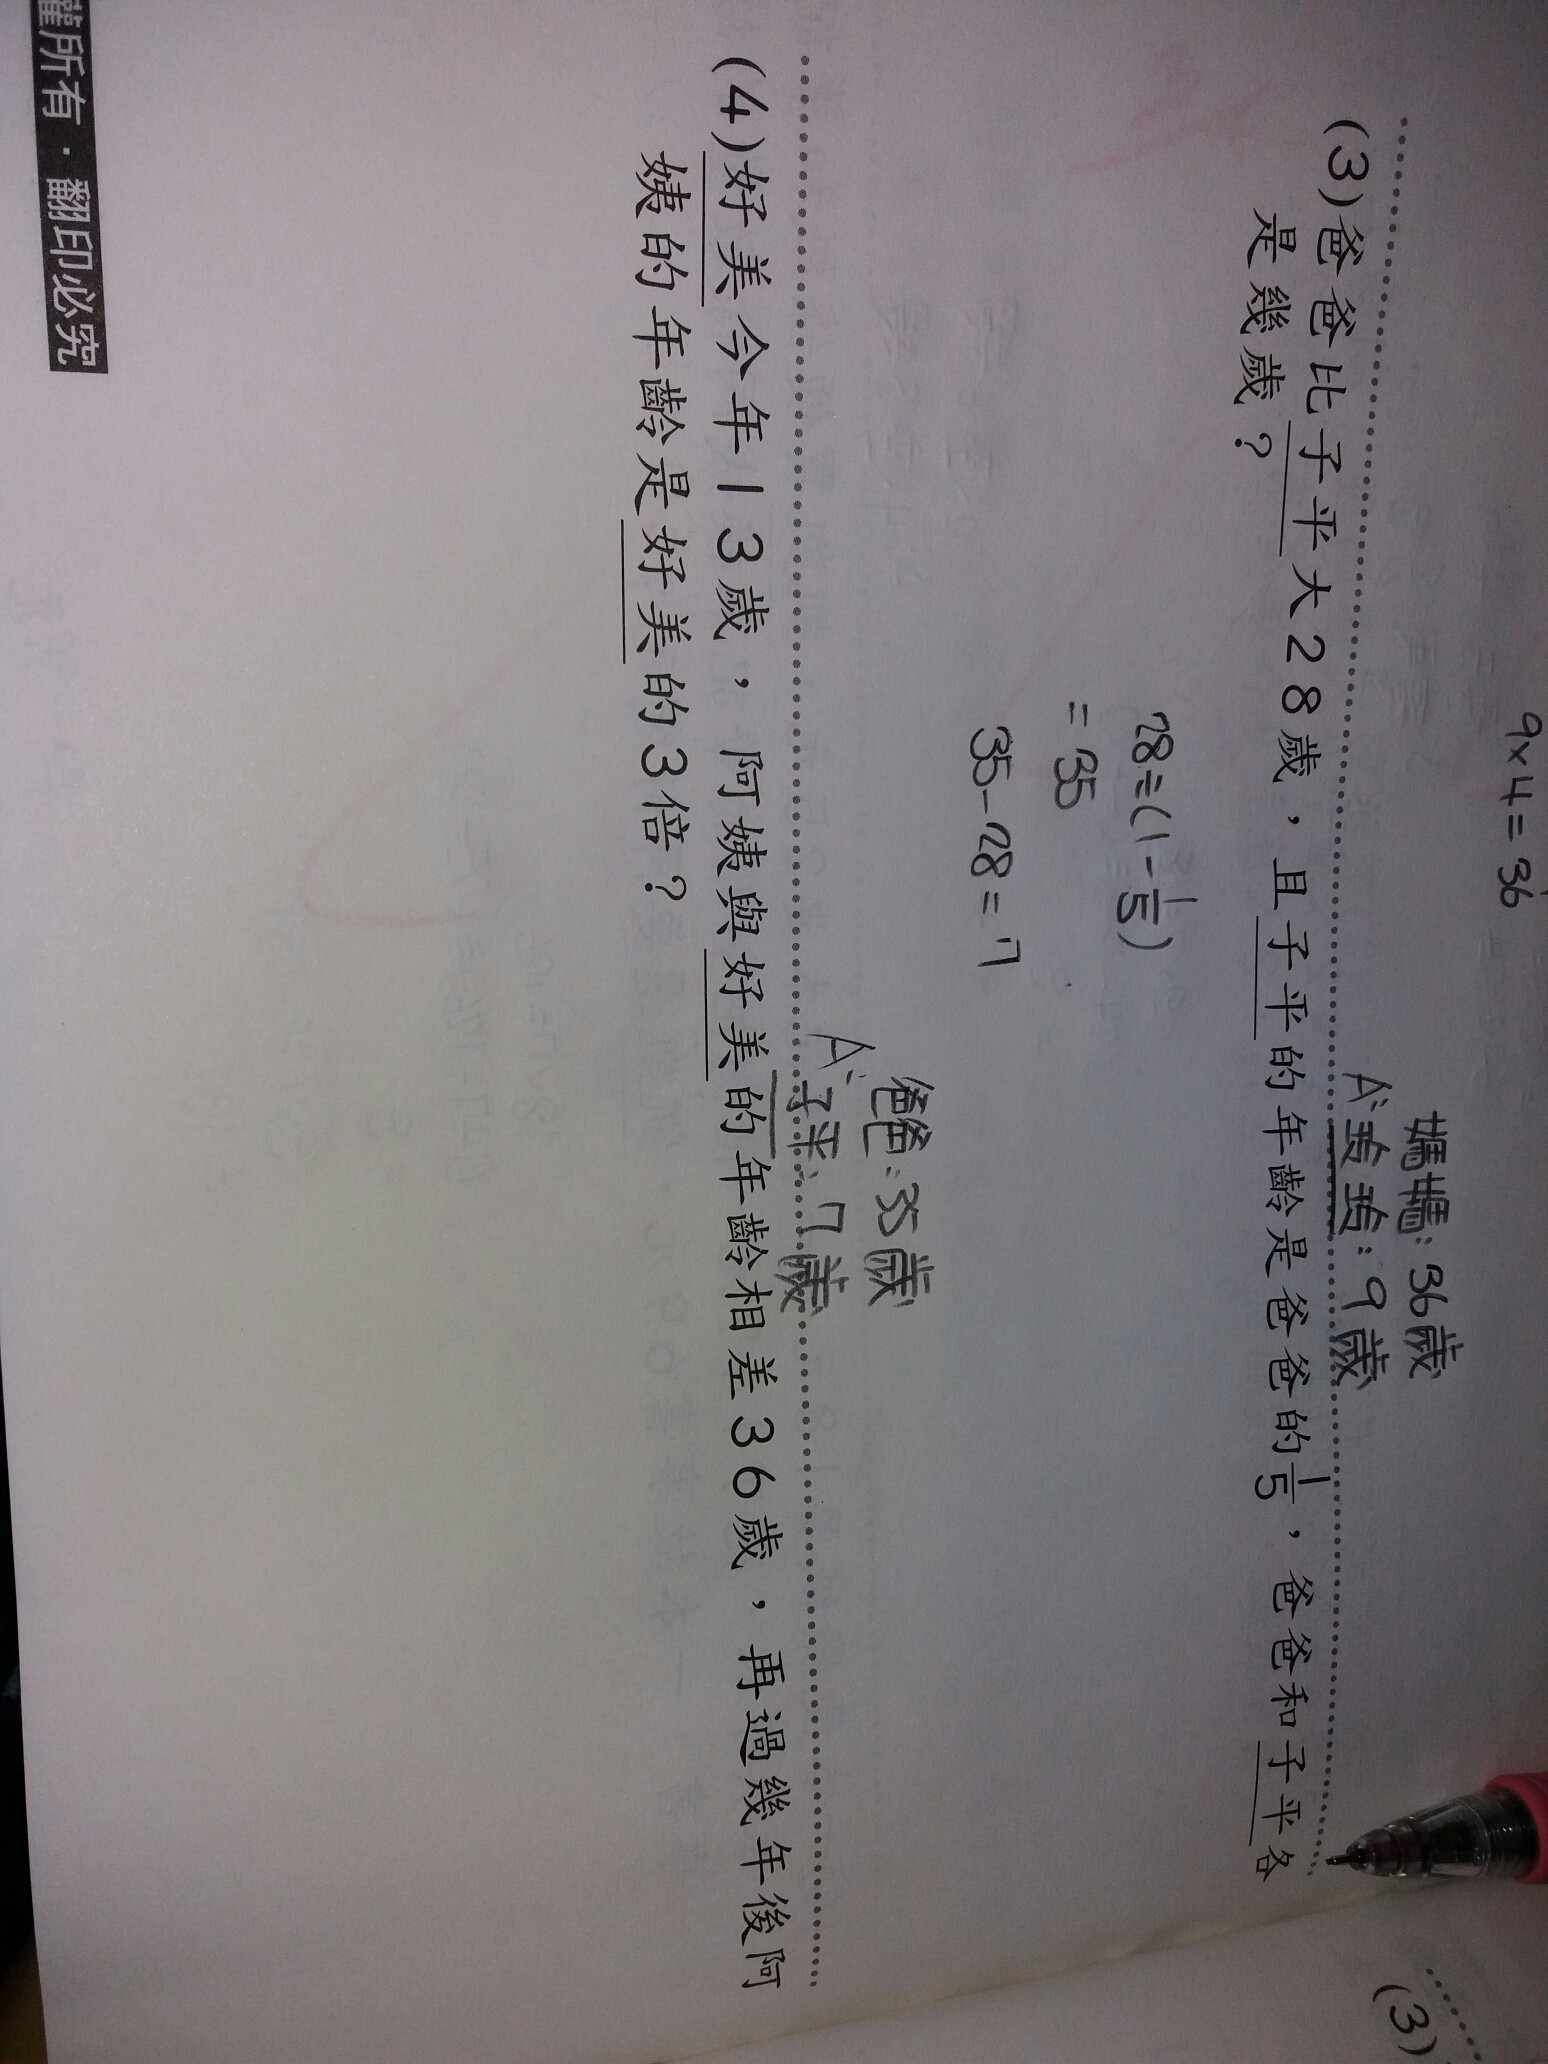 9×4=36
媽媽:36歲
A:玹玹:9歲
(3)爸爸比子平大28歲，且子平的年齡是爸爸的1/5，爸爸和子平各
是幾歲？
28÷(1-1/5)
=35
35-28=7
爸爸:35歲
A:子平:7歲
(4)好美今年13歲，阿姨與好美的年齡相差36歲，再過幾年後阿
姨的年齡是好美的3倍？
權所有·翻印必究
(3)